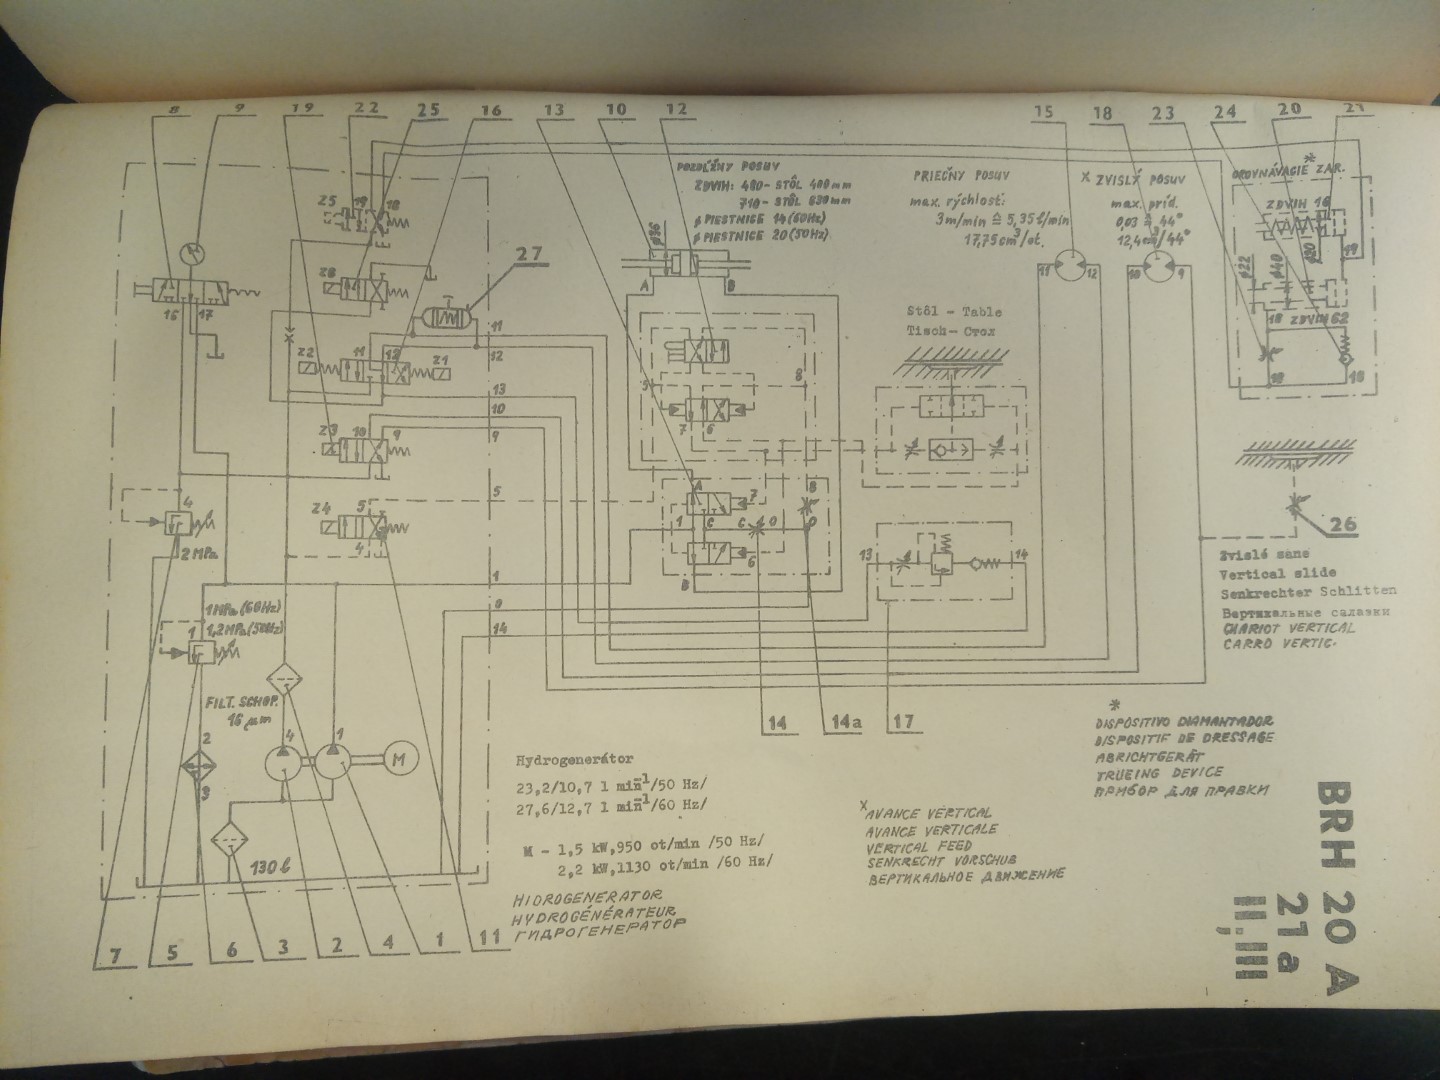 8 9 19 22 25 16 13 10 12 15 18 23 24 20 21
POZDĹŽNY POSUV
ZDVIH: 480 - STÔL 400mm
710 - STÔL 630mm
ϕ PIESTNICE 14 (60Hz)
ϕ PIESTNICE 20 (50Hz)
PRIEČNY POSUV
max. rýchlosť:
3m/min ≙ 5,35 l/min
17,75 cm³/ot.
X ZVISLÝ POSUV
max. príd.
0,03 ≙ 44°
12,4 cm³/44°
*
OROVNÁVACIE ZAR.
ZDVIH 16
19
ϕ22 ϕ40 ϕ20
18 ZDVIH 62
18 18
Z5 19 18
Z8
27
16 17
11
12
Z2 11 12 Z1
13
10
Z3 10 9
9
5
Z4 5
4
4
2 MPa
1
1MPa (60Hz)
1,2MPa (50Hz)
1
0
14
FILT. SCHOP.
16 μm
2
3
4 1
M
130 l
ϕ36
A B
9 8
7 6
A 8
7
1 C C O O
6
B
11 12 10 9
Stôl - Table
Tisch - Стол
13 14
26
Zvislé sane
Vertical slide
Senkrechter Schlitten
Вертикальные салазки
CHARIOT VERTICAL
CARRO VERTIC.
14 14a 17
Hydrogenerátor
23,2/10,7 l min⁻¹/50 Hz/
27,6/12,7 l min⁻¹/60 Hz/
M - 1,5 kW,950 ot/min /50 Hz/
2,2 kW,1130 ot/min /60 Hz/
HIDROGENERATOR
HYDROGÉNÉRATEUR
ГИДРОГЕНЕРАТОР
X AVANCE VERTICAL
AVANCE VERTICALE
VERTICAL FEED
SENKRECHT VORSCHUB
ВЕРТИКАЛЬНОЕ ДВИЖЕНИЕ
*
DISPOSITIVO DIAMANTADOR
DISPOSITIF DE DRESSAGE
ABRICHTGERÄT
TRUEING DEVICE
ПРИБОР ДЛЯ ПРАВКИ
7 5 6 3 2 4 1 11
BRH 20 A
21 a
II, III